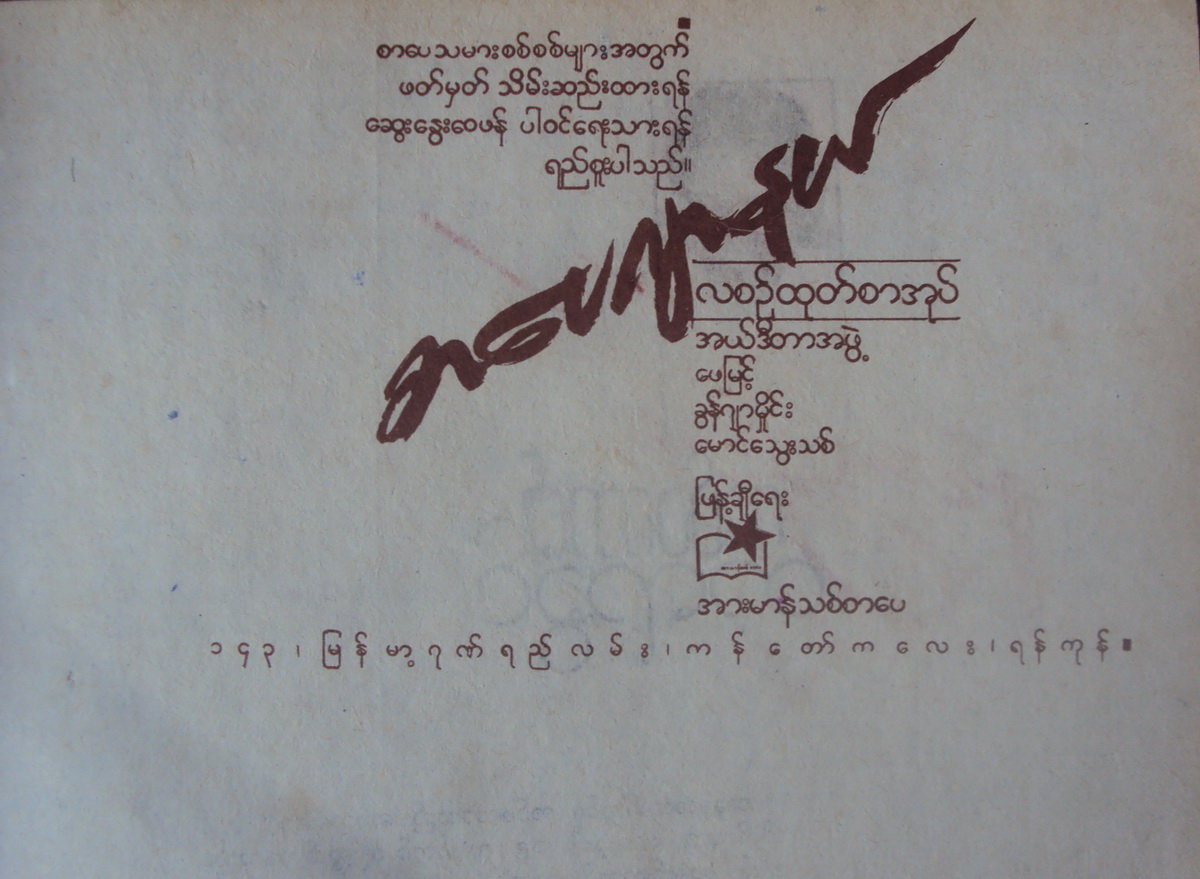 စာပေသမားစစ်စစ်များအတွက်
ဖတ်မှတ် သိမ်းဆည်းထားရန်
ဆွေးနွေးဝေဖန် ပါဝင်ရေးသားရန်
ရည်စူးပါသည်။
အပေလျာနယ်
လစဉ်ထုတ်စာအုပ်
အယ်ဒီတာအဖွဲ့
ဖေမြင့်
ခွန်ဂျာမှိုင်း
မောင်သွေးသစ်
ဖြန့်ချီရေး
အားမာန်သစ်စာပေ
၁၄၃ ၊ မြန်မာ့ဂုဏ်ရည်လမ်း ၊ ကန်တော်ကလေး ၊ ရန်ကုန်